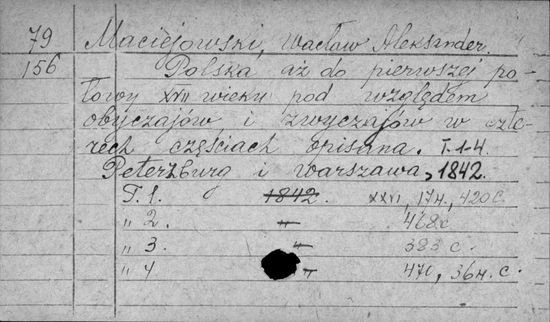 79 Maciejowski, Wacław Aleksander.
156 Polska aż do pierwszej po-
łowy XVII wieku pod względem
obyczajów i zwyczajów w czte-
rech częściach opisana. T. 1-4
Petersburg i Warszawa, 1842.
T. 1. 1842. XXVI, 17н., 420 с.
" 2. " 468с
" 3. " 383 с.
" 4 " 471, 36н. с.